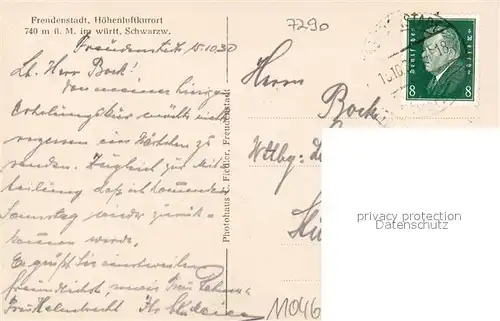 Freudenstadt, Höhenluftkurort
740 m ü. M. im württ. Schwarzw.
7290
Freudenstadt, 15.10.30
Lb. Herr Bock!
Von meiner hiesigen
Erholungskur möchte nicht
vergessen ein Kärtchen zu
senden. Zugleich zur Mit-
teilung daß ich kommenden
Samstag wieder zurück-
kommen werde.
Es grüßt Sie einstweilen
freundlichst, meine Frau
Frau Helmbrecht Ihr
Photohaus C. Fiedler, Freudenstadt
Deutsches Reich
8 8
Herrn
Bock
Wttbg.
privacy protection
Datenschutz
11046